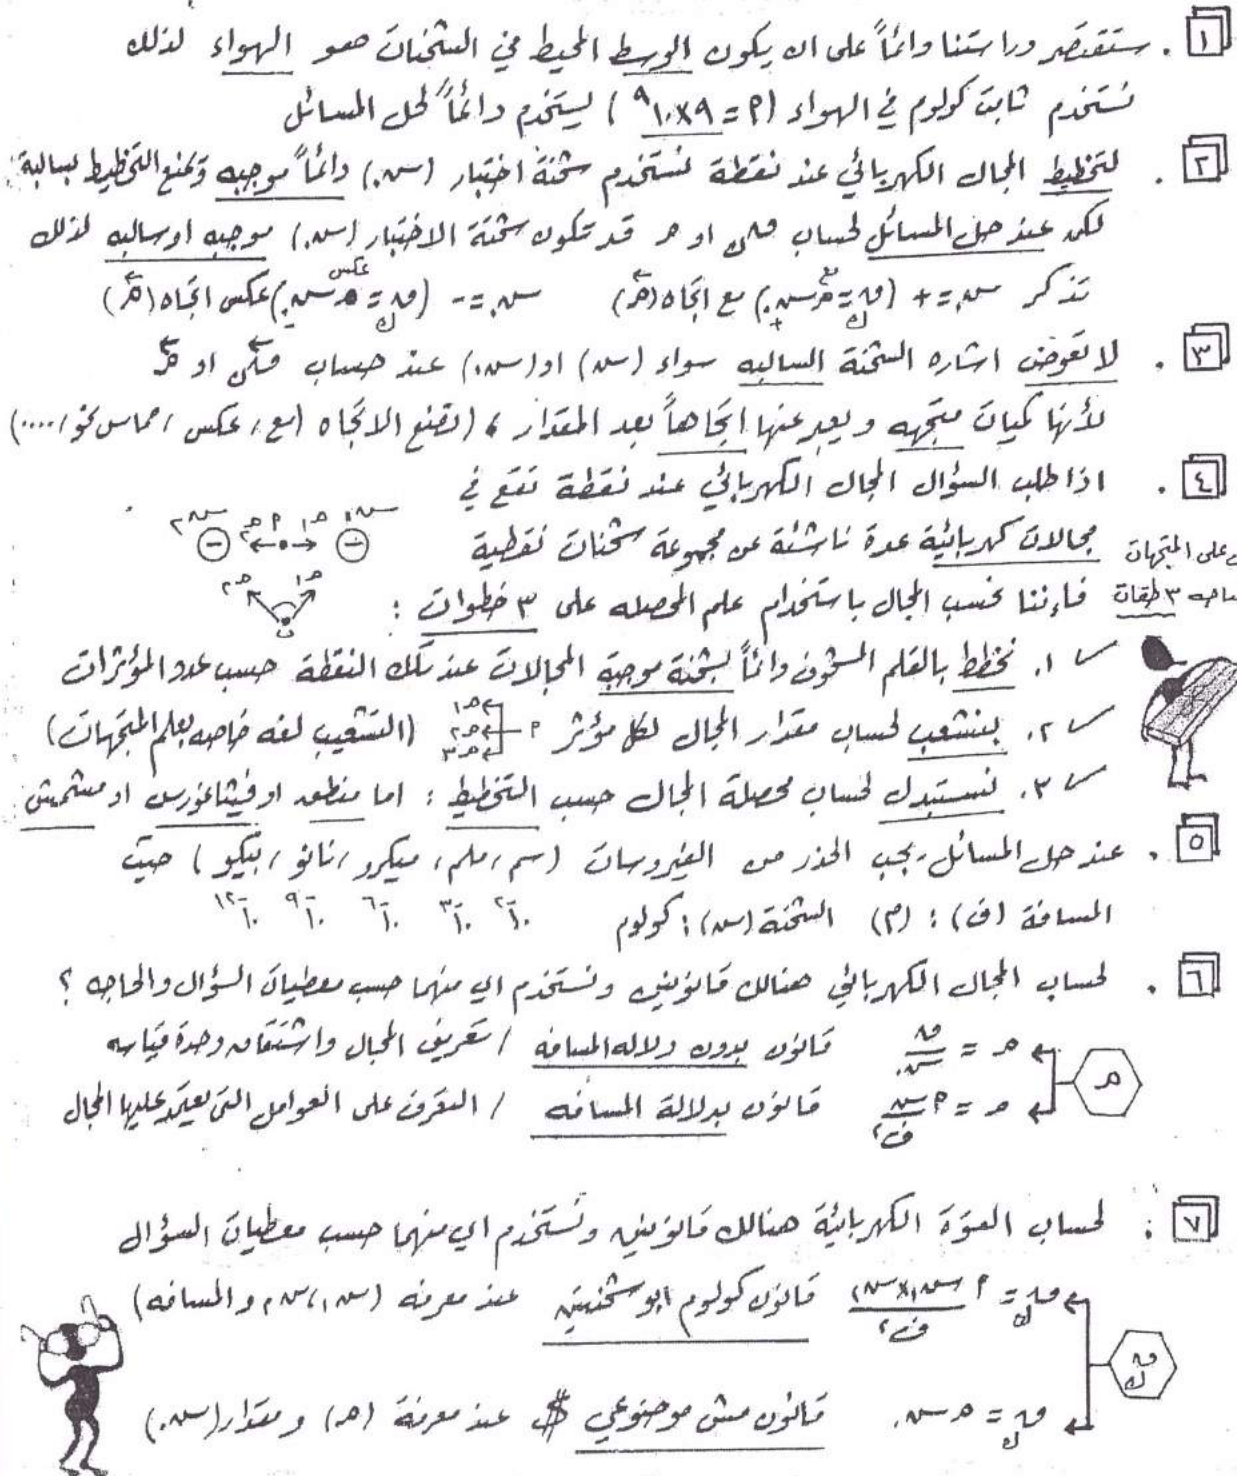 ١ . ستقتصر دراستنا دائماً على ان يكون الوسط المحيط في الشحنات هو الهواء لذلك
نستخدم ثابت كولوم في الهواء (أ = ٩×١٠^٩) يستخدم دائماً لحل المسائل
٢ . لتخطيط المجال الكهربائي عند نقطة نستخدم شحنة اختبار (س.) دائماً موجبه ويمنع التخطيط بسالبة
لكن عند حل المسائل لحساب ق او م قد تكون شحنة الاختبار (س.) موجبه او سالبه لذلك
تذكر س. = + (ق = م س.) مع اتجاه (م) س. = - (ق = م س.) عكس اتجاه (م)
٣ . لا تعوض اشاره الشحنة السالبه سواء (س) او (س.) عند حساب ق او م
لأنها كميات متجهه و يعبر عنها اتجاهاً بعد المقدار ، (تضع الاتجاه (مع ، عكس ، مماس نحو ، ....)
٤ . اذا طلب السؤال المجال الكهربائي عند نقطة تقع في
مجالات كهربائية عدة ناشئة عن مجموعة شحنات نقطية
على المتجهات
س٢ م٢ أ م١ س١
فإننا نحسب المجال باستخدام علم المحصله على ٣ خطوات :
٣ طبقات
م٢ م١
١. نخطط بالقلم المشحون دائماً بشحنة موجبة المجالات عند تلك النقطة حسب عدد المؤثرات
٢. بنشعب لحساب مقدار المجال لكل مؤثر أ م١ م٢ م٣ (التشعيب لغه خاصه بعلم المتجهات)
٣. نستبدل لحساب محصلة المجال حسب التخطيط : اما منطق او فيثاغورس او مشمش
٥ . عند حل المسائل يجب الحذر من الفيروسات (سم ، ملم ، ميكرو ، نانو ، بيكو) حيث
المسافة (ف) : (م) الشحنة (س) : كولوم ١٠^-٢ ١٠^-٣ ١٠^-٦ ١٠^-٩ ١٠^-١٢
٦ . لحساب المجال الكهربائي هنالك قانونين ونستخدم اي منهما حسب معطيات السؤال والحاجه ؟
م = ق/س. قانون بدون دلاله المسافه / تعريف المجال واشتقاق وحدة قياسه
م
م = أ س/ف٢ قانون بدلالة المسافه / التعرف على العوامل التي يعتمد عليها المجال
٧ : لحساب القوة الكهربائية هنالك قانونين ونستخدم اي منهما حسب معطيات السؤال
قك = أ س١×س٢/ف٢ قانون كولوم ابو شحنتين عند معرفة (س١، س٢ والمسافه)
قك
قك = م س. قانون مش موضوعي عند معرفة (م) و مقدار (س.)